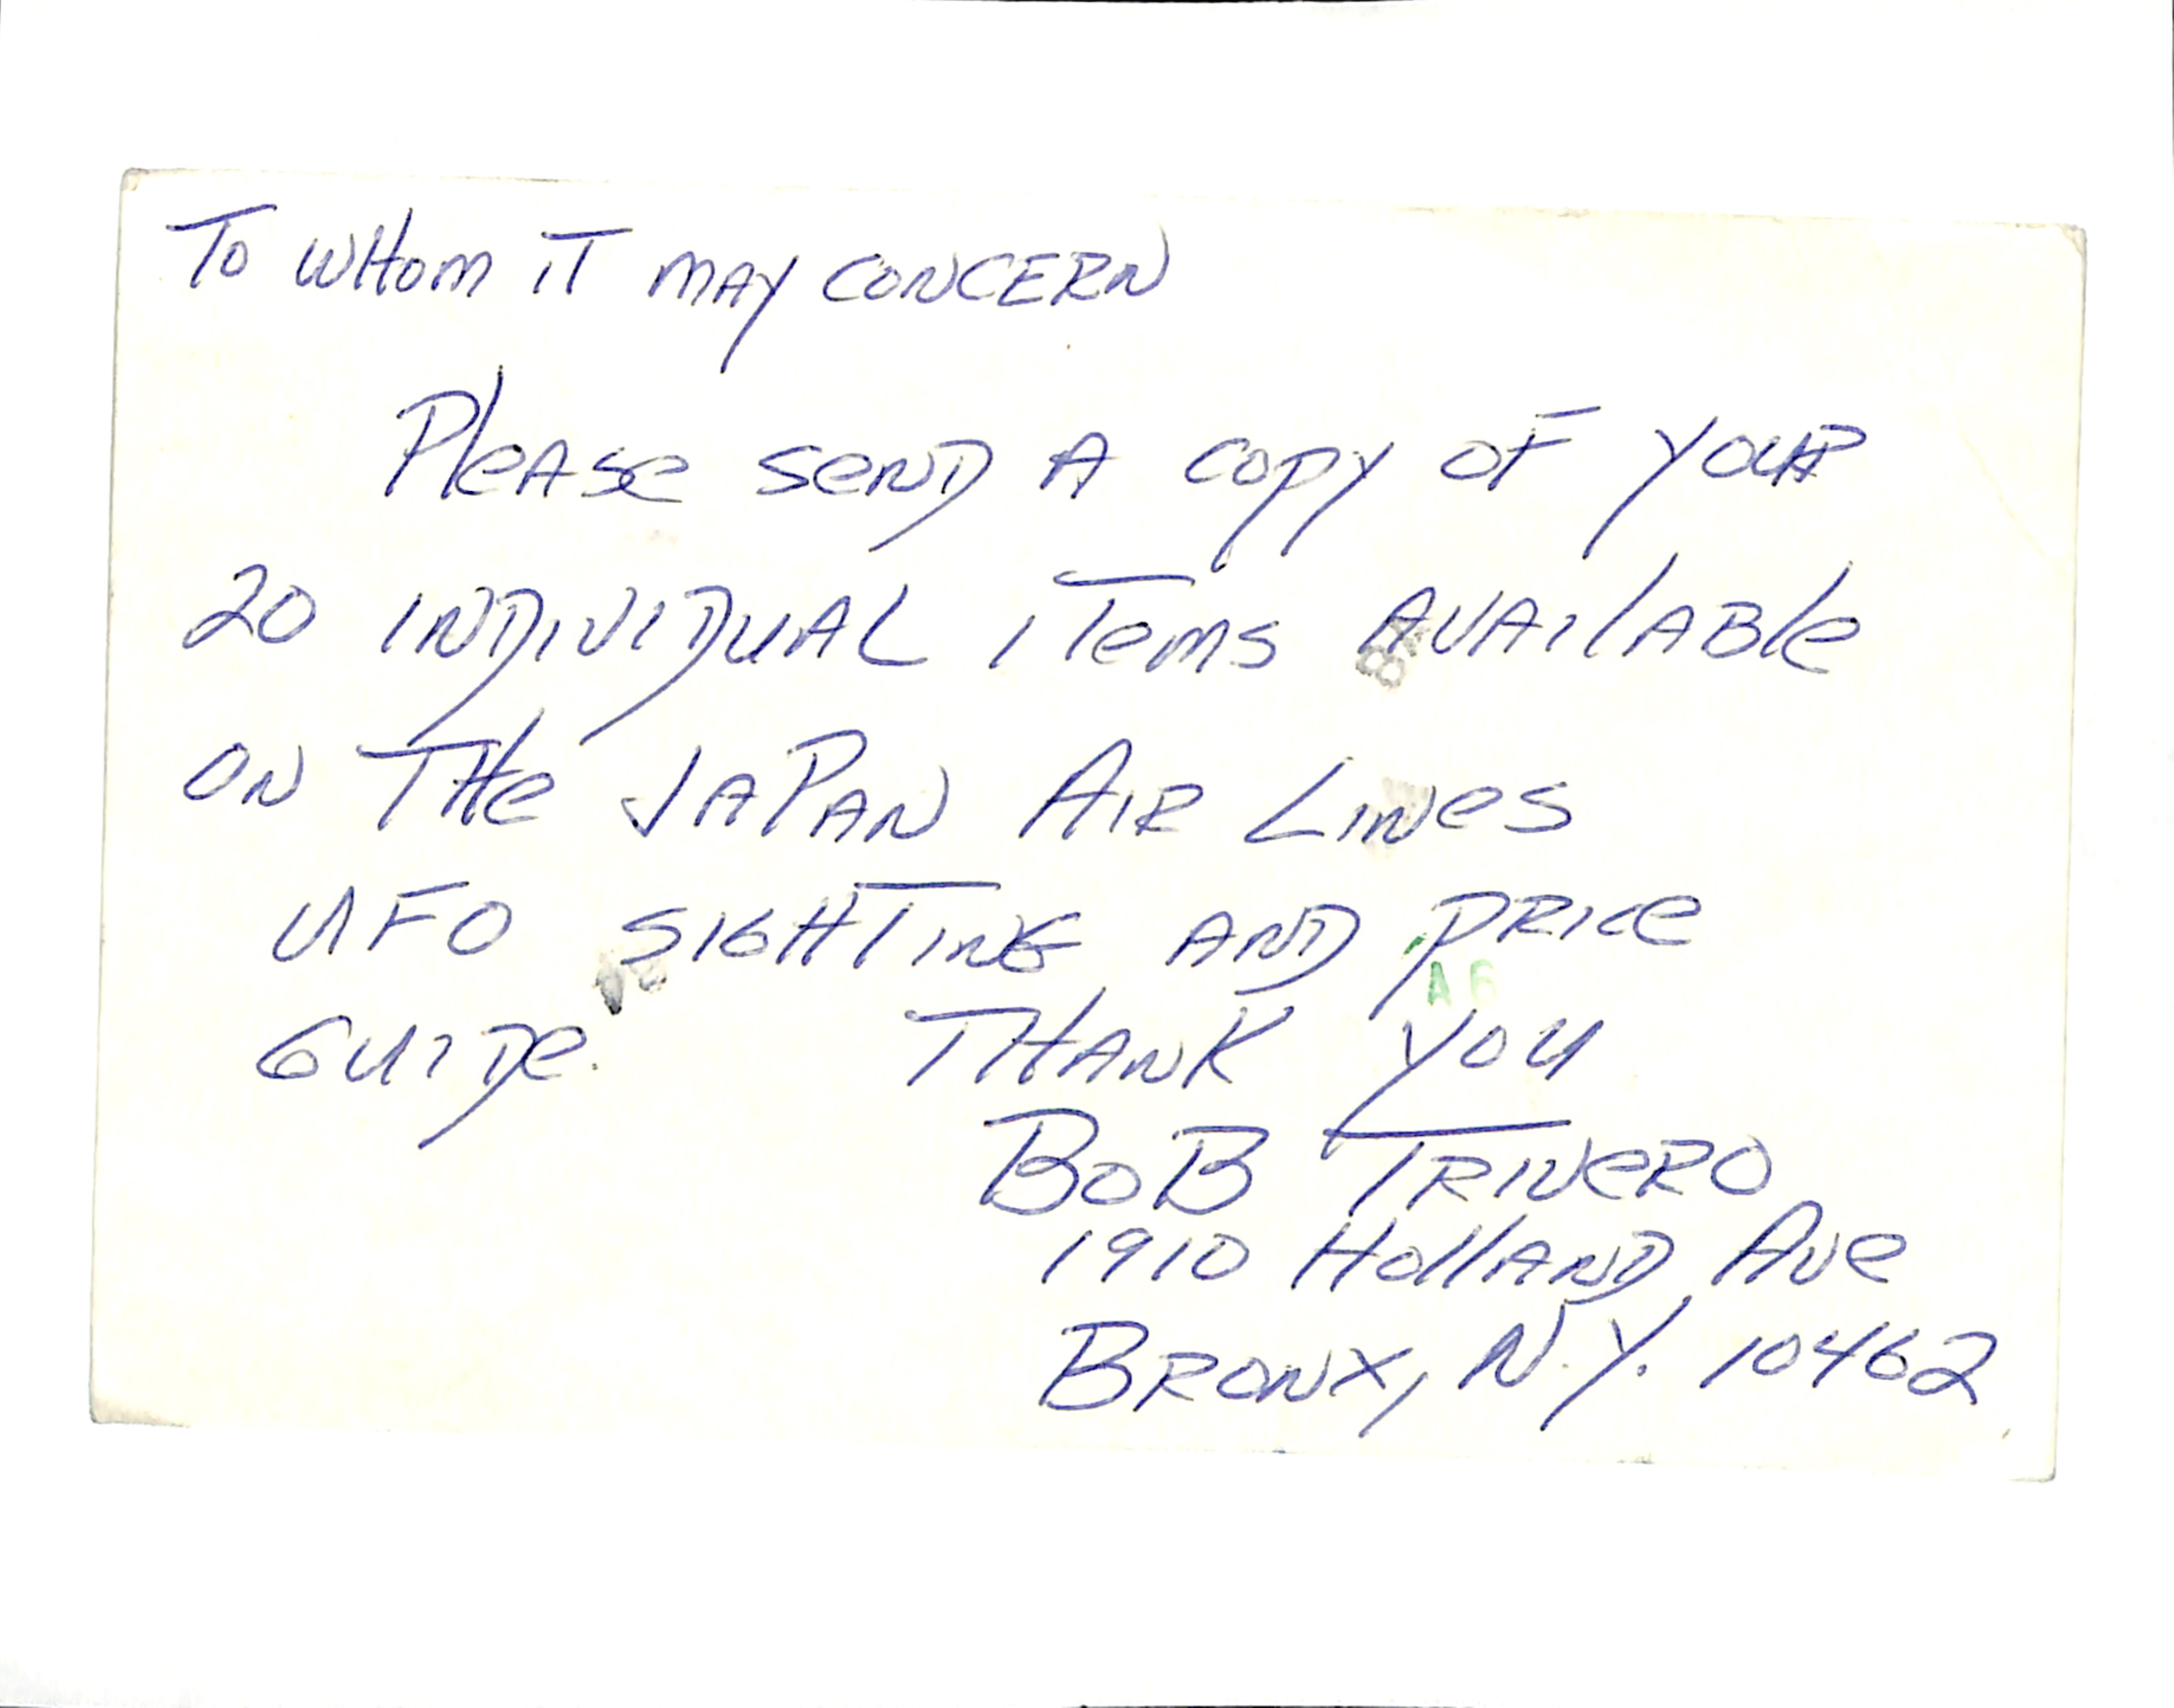 To WHom iT mAy CONCERN
PleAse seND A copy oF youR
20 INDIVIDUAL iTems AVAilABle
ON THe JAPAN AIR LINes
UFO SIGHTING AND PRICe
A6
GUIDe. THANK you
BoB TRIVERO
1910 HollAND Ave
BRONX, N.Y. 10462